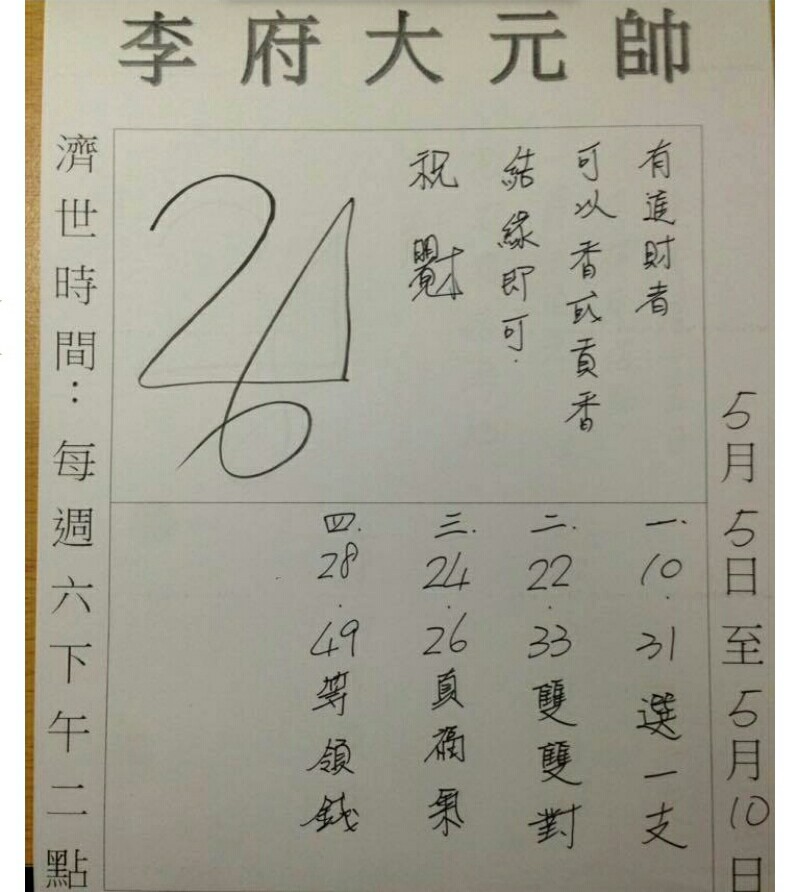 李府大元帥
5月5日至5月10日
有進財者
可以香或貢香
結緣即可.
祝
26
一. 10. 31選一支
二. 22. 33雙雙對
三. 24. 26真福氣
四. 28. 49等領錢
濟世時間：每週六下午二點